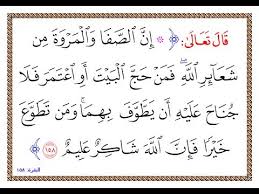 قَالَ تَعَالَى: ﴿ ۞ إِنَّ ٱلصَّفَا وَٱلْمَرْوَةَ مِن
شَعَآئِرِ ٱللَّهِ ۖ فَمَنْ حَجَّ ٱلْبَيْتَ أَوِ ٱعْتَمَرَ فَلَا
جُنَاحَ عَلَيْهِ أَن يَطَّوَّفَ بِهِمَا ۚ وَمَن تَطَوَّعَ
خَيْرًا فَإِنَّ ٱللَّهَ شَاكِرٌ عَلِيمٌ ١٥٨ ﴾
البقرة: ١٥٨